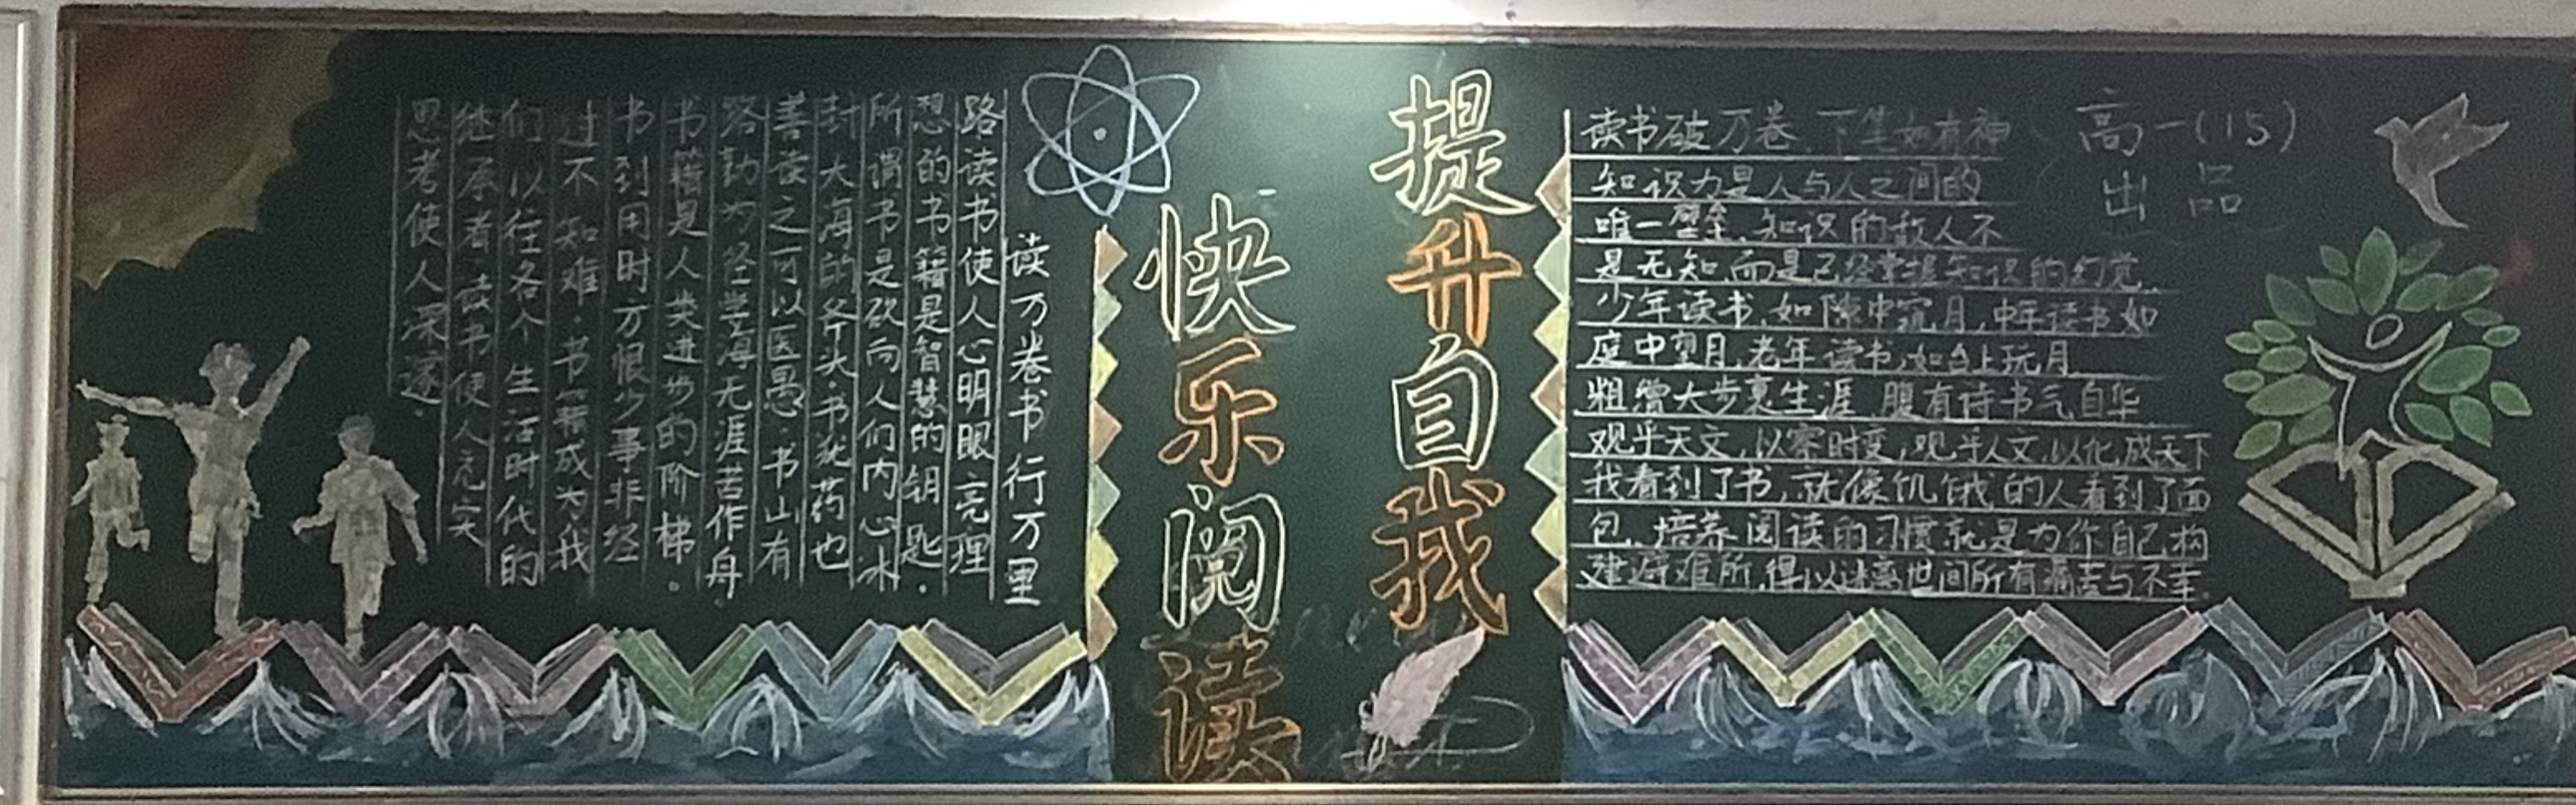 提升自我
快乐阅读
读万卷书 行万里
路读书使人心明眼亮理
想的书籍是智慧的钥匙.
所谓书是砍向人们内心冰
封大海的斧头.书犹药也
善读之可以医愚.书山有
路勤为径学海无涯苦作舟.
书籍是人类进步的阶梯。
书到用时方恨少事非经
过不知难.书籍成为我
们以往各个生活时代的
继承者.读书使人充实
思考使人深邃.
读书破万卷、下笔如有神
知识力是人与人之间的
唯一壁垒.知识的敌人不
是无知,而是已经掌握知识的幻觉.
少年读书,如隙中窥月,中年读书如
庭中望月,老年读书,如台上玩月.
粗缯大步裹生涯 腹有诗书气自华
观乎天文,以察时变,观乎人文,以化成天下
我看到了书,就像饥饿的人看到了面
包.培养阅读的习惯就是为你自己构
建避难所,得以逃离世间所有痛苦与不幸.
高一(15)
出品